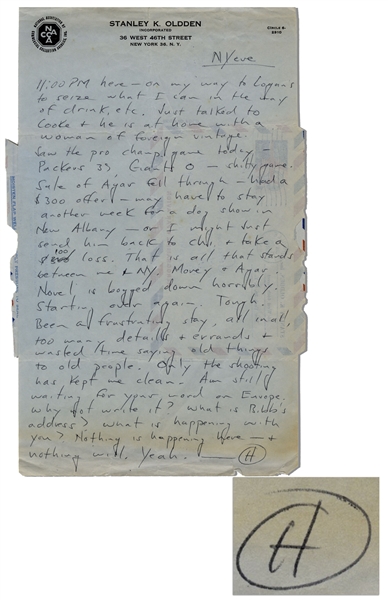 STANLEY K. OLDDEN
INCORPORATED
36 WEST 46TH STREET
NEW YORK 36, N. Y.
NYeve
11:00 PM here — on my way to Logans
to seize what I can in the way
of drink, etc. Just talked to
Cooke & he is at home with a
woman of foreign vintage.
Saw the pro champ game today —
Packers 37, Giants 0 — shitty game.
Sale of Agar fell through — had a
$300 offer — may have to stay
another week for a dog show in
New Albany — or I might just
send him back to Chi. & take a
100
loss. That is all that stands
between me & NY. Money & Agar.
Novel is bogged down horribly.
Starting over again. Tough.
Been a frustrating stay, all in all,
too many details & errands &
wasted time saying old things
to old people. Only the shooting
has kept me clean. Am still
waiting for your word on Europe.
Why not write it? What is Bibb's
address? What is happening with
you? Nothing is happening here — &
nothing will. Yeah. — H
H